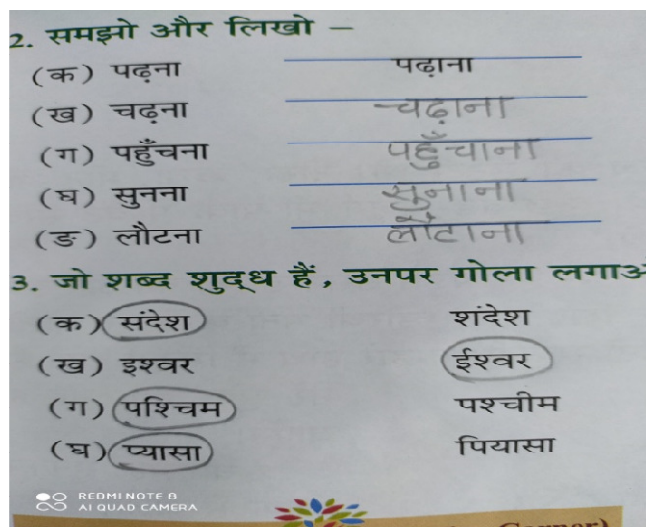 2. समझो और लिखो –
(क) पढ़ना पढ़ाना
(ख) चढ़ना चढ़ाना
(ग) पहुँचना पहुँचाना
(घ) सुनना सुनाना
(ङ) लौटना लौटाना
3. जो शब्द शुद्ध हैं, उनपर गोला लगाओ
(क) संदेश शंदेश
(ख) इश्वर ईश्वर
(ग) पश्चिम पश्चीम
(घ) प्यासा पियासा
REDMI NOTE 8
AI QUAD CAMERA
Corner)